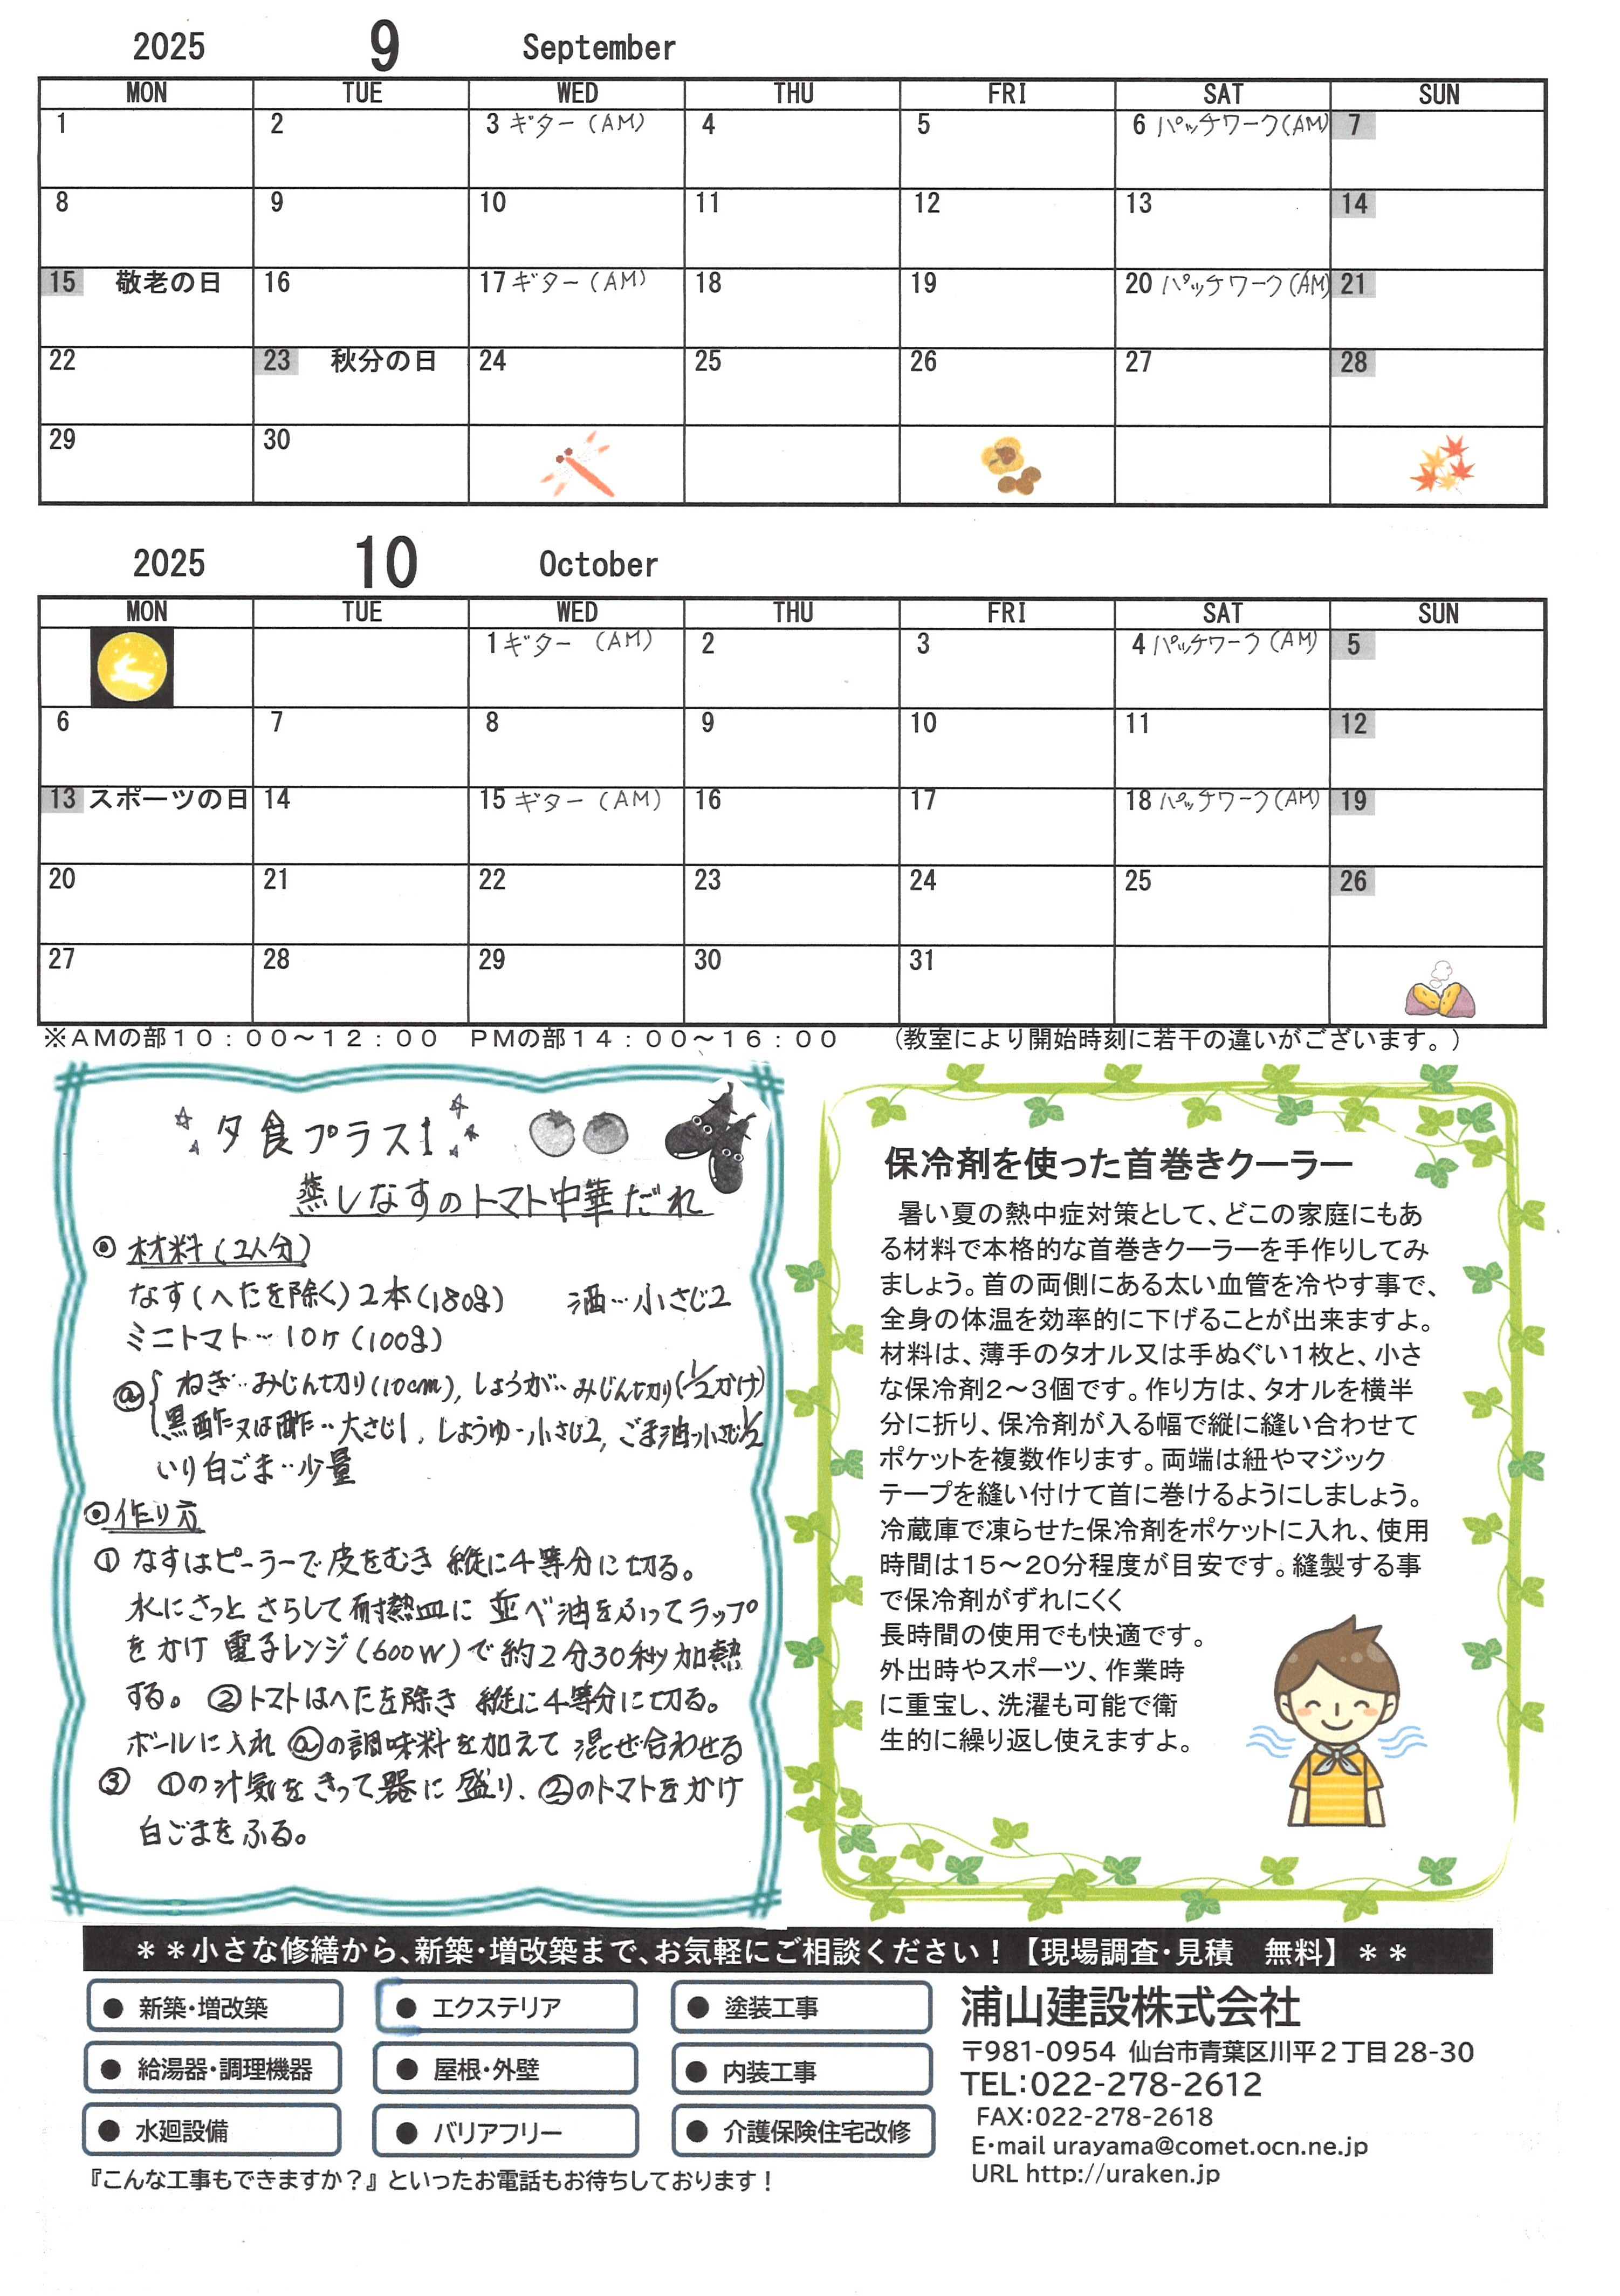 2025 9 September
MON TUE WED THU FRI SAT SUN
1 2 3 ギター (AM) 4 5 6 パッチワーク(AM) 7
8 9 10 11 12 13 14
15 敬老の日 16 17 ギター (AM) 18 19 20 パッチワーク(AM) 21
22 23 秋分の日 24 25 26 27 28
29 30
2025 10 October
MON TUE WED THU FRI SAT SUN
1 ギター (AM) 2 3 4 パッチワーク (AM) 5
6 7 8 9 10 11 12
13 スポーツの日 14 15 ギター (AM) 16 17 18 パッチワーク(AM) 19
20 21 22 23 24 25 26
27 28 29 30 31
※AMの部10:00~12:00 PMの部14:00~16:00 (教室により開始時刻に若干の違いがございます。)
夕食プラス1
蒸しなすのトマト中華だれ
◎ 材料(2人分)
なす(へたを除く)2本(180g) 酒…小さじ2
ミニトマト…10ヶ(100g)
ⓐ ねぎ…みじん切り(10cm), しょうが…みじん切り(1/2かけ)
黒酢又は酢…大さじ1, しょうゆ…小さじ2, ごま油…小さじ1/2
いり白ごま…少量
◎作り方
① なすはピーラーで皮をむき 縦に4等分に切る。
水にさっと さらして耐熱皿に 並べ油をふってラップ
をかけ 電子レンジ(600W)で約2分30秒加熱
する。 ②トマトはへたを除き 縦に4等分に切る。
ボールに入れ ⓐの調味料を加えて 混ぜ合わせる
③ ①の汁気をきって器に 盛り、②のトマトをかけ
白ごまをふる。
保冷剤を使った首巻きクーラー
暑い夏の熱中症対策として、どこの家庭にもあ
る材料で本格的な首巻きクーラーを手作りしてみ
ましょう。首の両側にある太い血管を冷やす事で、
全身の体温を効率的に下げることが出来ますよ。
材料は、薄手のタオル又は手ぬぐい1枚と、小さ
な保冷剤2~3個です。作り方は、タオルを横半
分に折り、保冷剤が入る幅で縦に縫い合わせて
ポケットを複数作ります。両端は紐やマジック
テープを縫い付けて首に巻けるようにしましょう。
冷蔵庫で凍らせた保冷剤をポケットに入れ、使用
時間は15~20分程度が目安です。縫製する事
で保冷剤がずれにくく
長時間の使用でも快適です。
外出時やスポーツ、作業時
に重宝し、洗濯も可能で衛
生的に繰り返し使えますよ。
**小さな修繕から、新築・増改築まで、お気軽にご相談ください!【現場調査・見積 無料】**
● 新築・増改築 ● エクステリア ● 塗装工事
● 給湯器・調理機器 ● 屋根・外壁 ● 内装工事
● 水廻設備 ● バリアフリー ● 介護保険住宅改修
『こんな工事もできますか?』といったお電話もお待ちしております!
浦山建設株式会社
〒981-0954 仙台市青葉区川平2丁目28-30
TEL:022-278-2612
FAX:022-278-2618
E・mail urayama@comet.ocn.ne.jp
URL http://uraken.jp